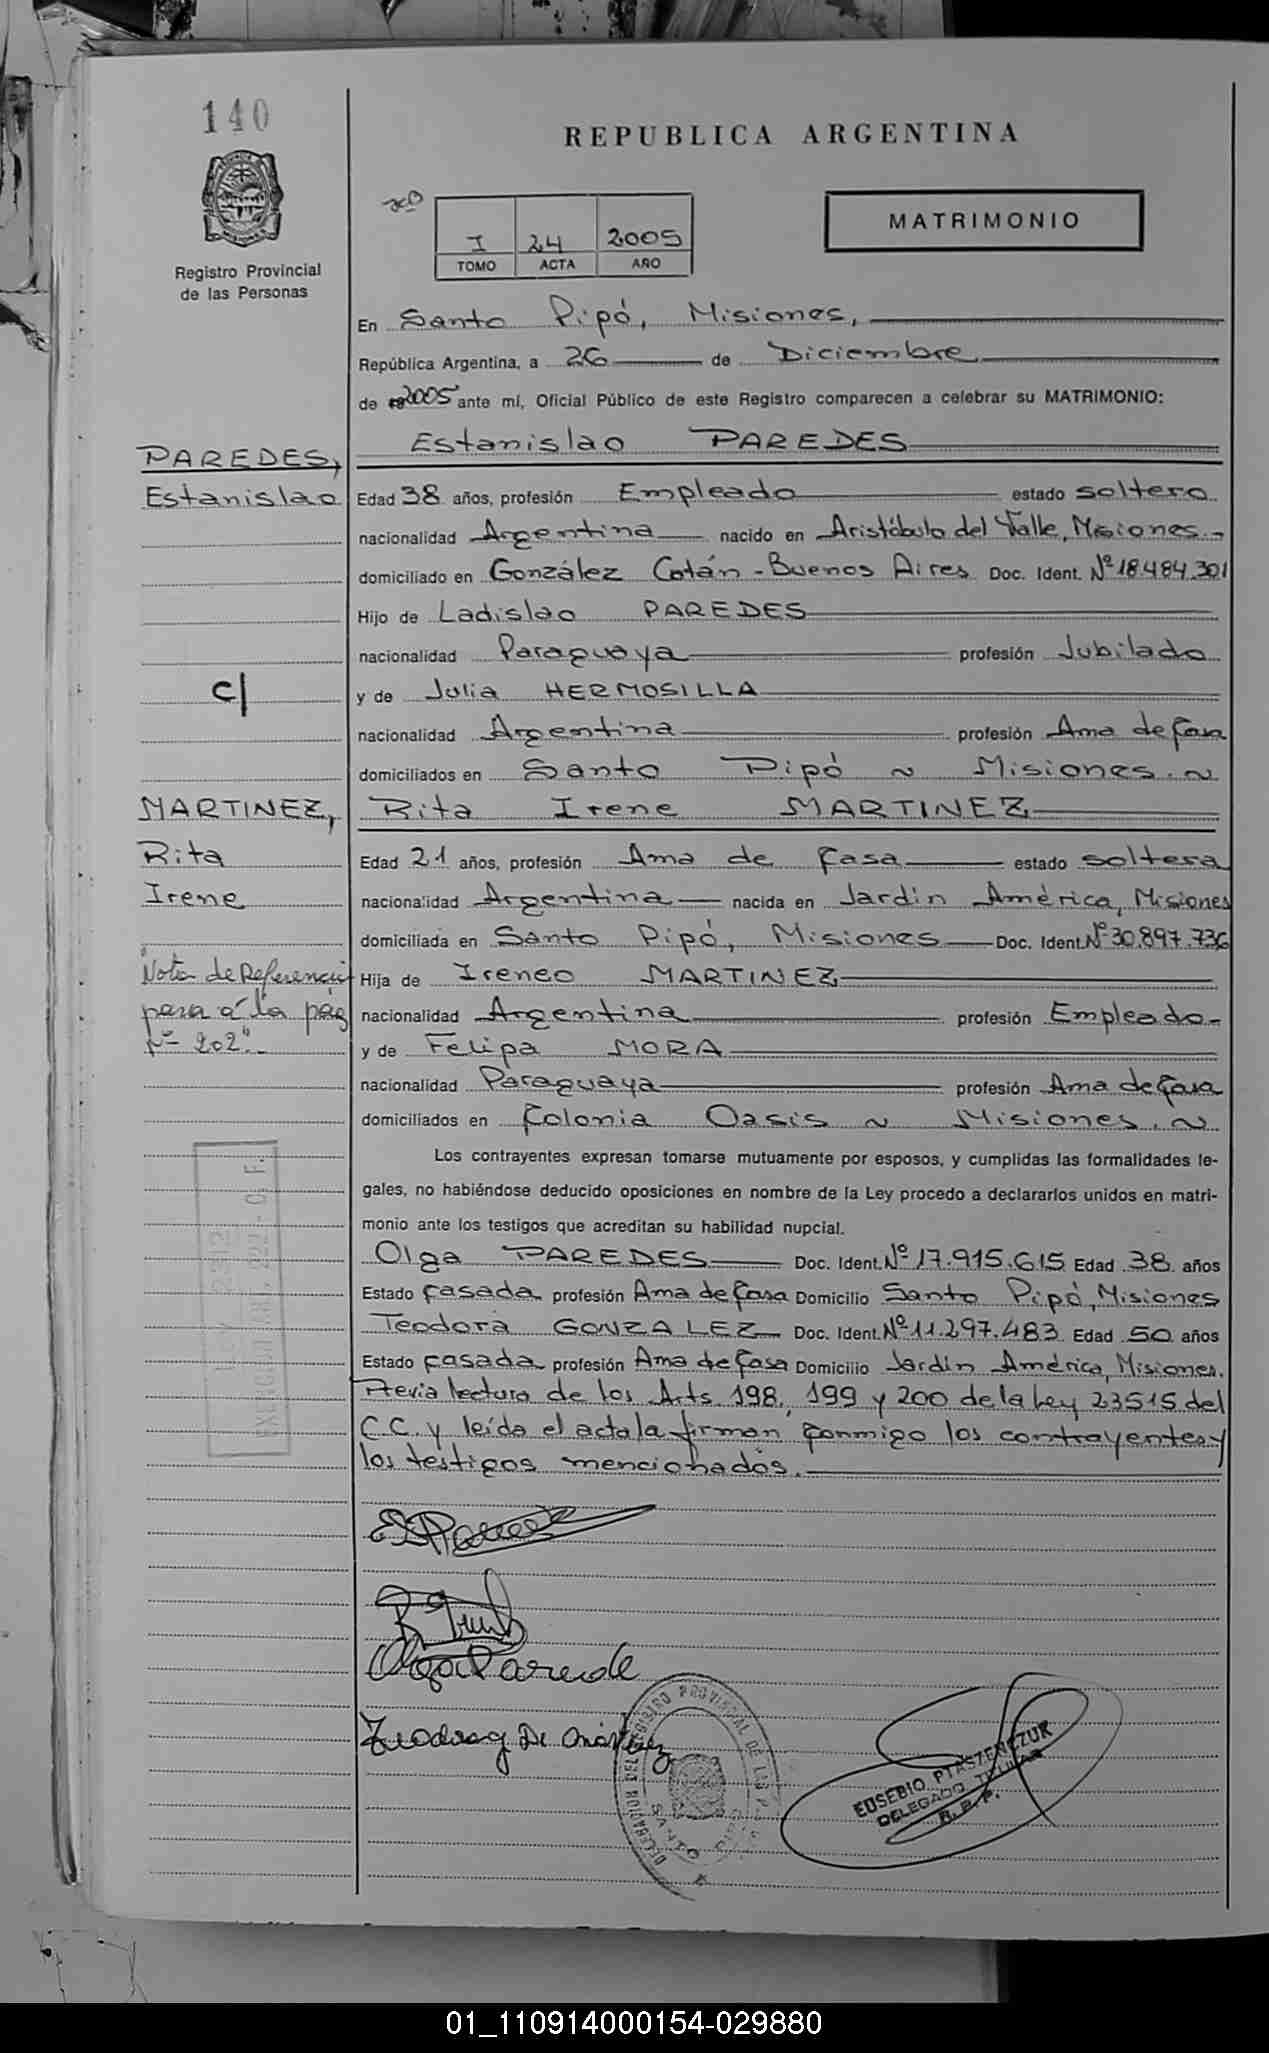 140
REPUBLICA ARGENTINA
I 24 2005
TOMO ACTA AÑO
MATRIMONIO
Registro Provincial
de las Personas
En Santo Pipó, Misiones,
República Argentina, a 26 de Diciembre
de 2005 ante mí, Oficial Público de este Registro comparecen a celebrar su MATRIMONIO:
Estanislao PAREDES
PAREDES,
Estanislao
Edad 38 años, profesión Empleado estado soltero
nacionalidad Argentina nacido en Aristóbulo del Valle, Misiones.-
domiciliado en González Catán - Buenos Aires Doc. Ident. Nº 18.484.301
Hijo de Ladislao PAREDES
nacionalidad Paraguaya profesión Jubilado
c/
y de Julia HERMOSILLA
nacionalidad Argentina profesión Ama de Casa
domiciliados en Santo Pipó ~ Misiones. ~
MARTINEZ,
Rita
Irene
Rita Irene MARTINEZ
Edad 21 años, profesión Ama de Casa estado soltera
nacionalidad Argentina nacida en Jardín América, Misiones
domiciliada en Santo Pipó, Misiones Doc. Ident. Nº 30.897.736
Nota de Referencia
para a la pág
Nº 202".-
Hija de Ireneo MARTINEZ
nacionalidad Argentina profesión Empleado-
y de Felipa MORA
nacionalidad Paraguaya profesión Ama de Casa
domiciliados en Colonia Oasis ~ Misiones. ~
Los contrayentes expresan tomarse mutuamente por esposos, y cumplidas las formalidades le-
gales, no habiéndose deducido oposiciones en nombre de la Ley procedo a declararlos unidos en matri-
monio ante los testigos que acreditan su habilidad nupcial.
Olga PAREDES Doc. Ident. Nº 17.915.615 Edad 38 años
Estado Casada profesión Ama de Casa Domicilio Santo Pipó, Misiones
Teodora GONZALEZ Doc. Ident. Nº 11.297.483 Edad 50 años
Estado Casada profesión Ama de Casa Domicilio Jardín América, Misiones.
Previa lectura de los Arts. 198, 199 y 200 de la Ley 23515 del
C.C. y leída el acta la firman conmigo los contrayentes y
los testigos mencionados.
E Paredes
Olga Parede
DELEGACION DEL REGISTRO PROVINCIAL DE LAS
SANTO
EUSEBIO PTASZENCZUK
DELEGADO TITULAR
R. P. P.
01_110914000154-029880